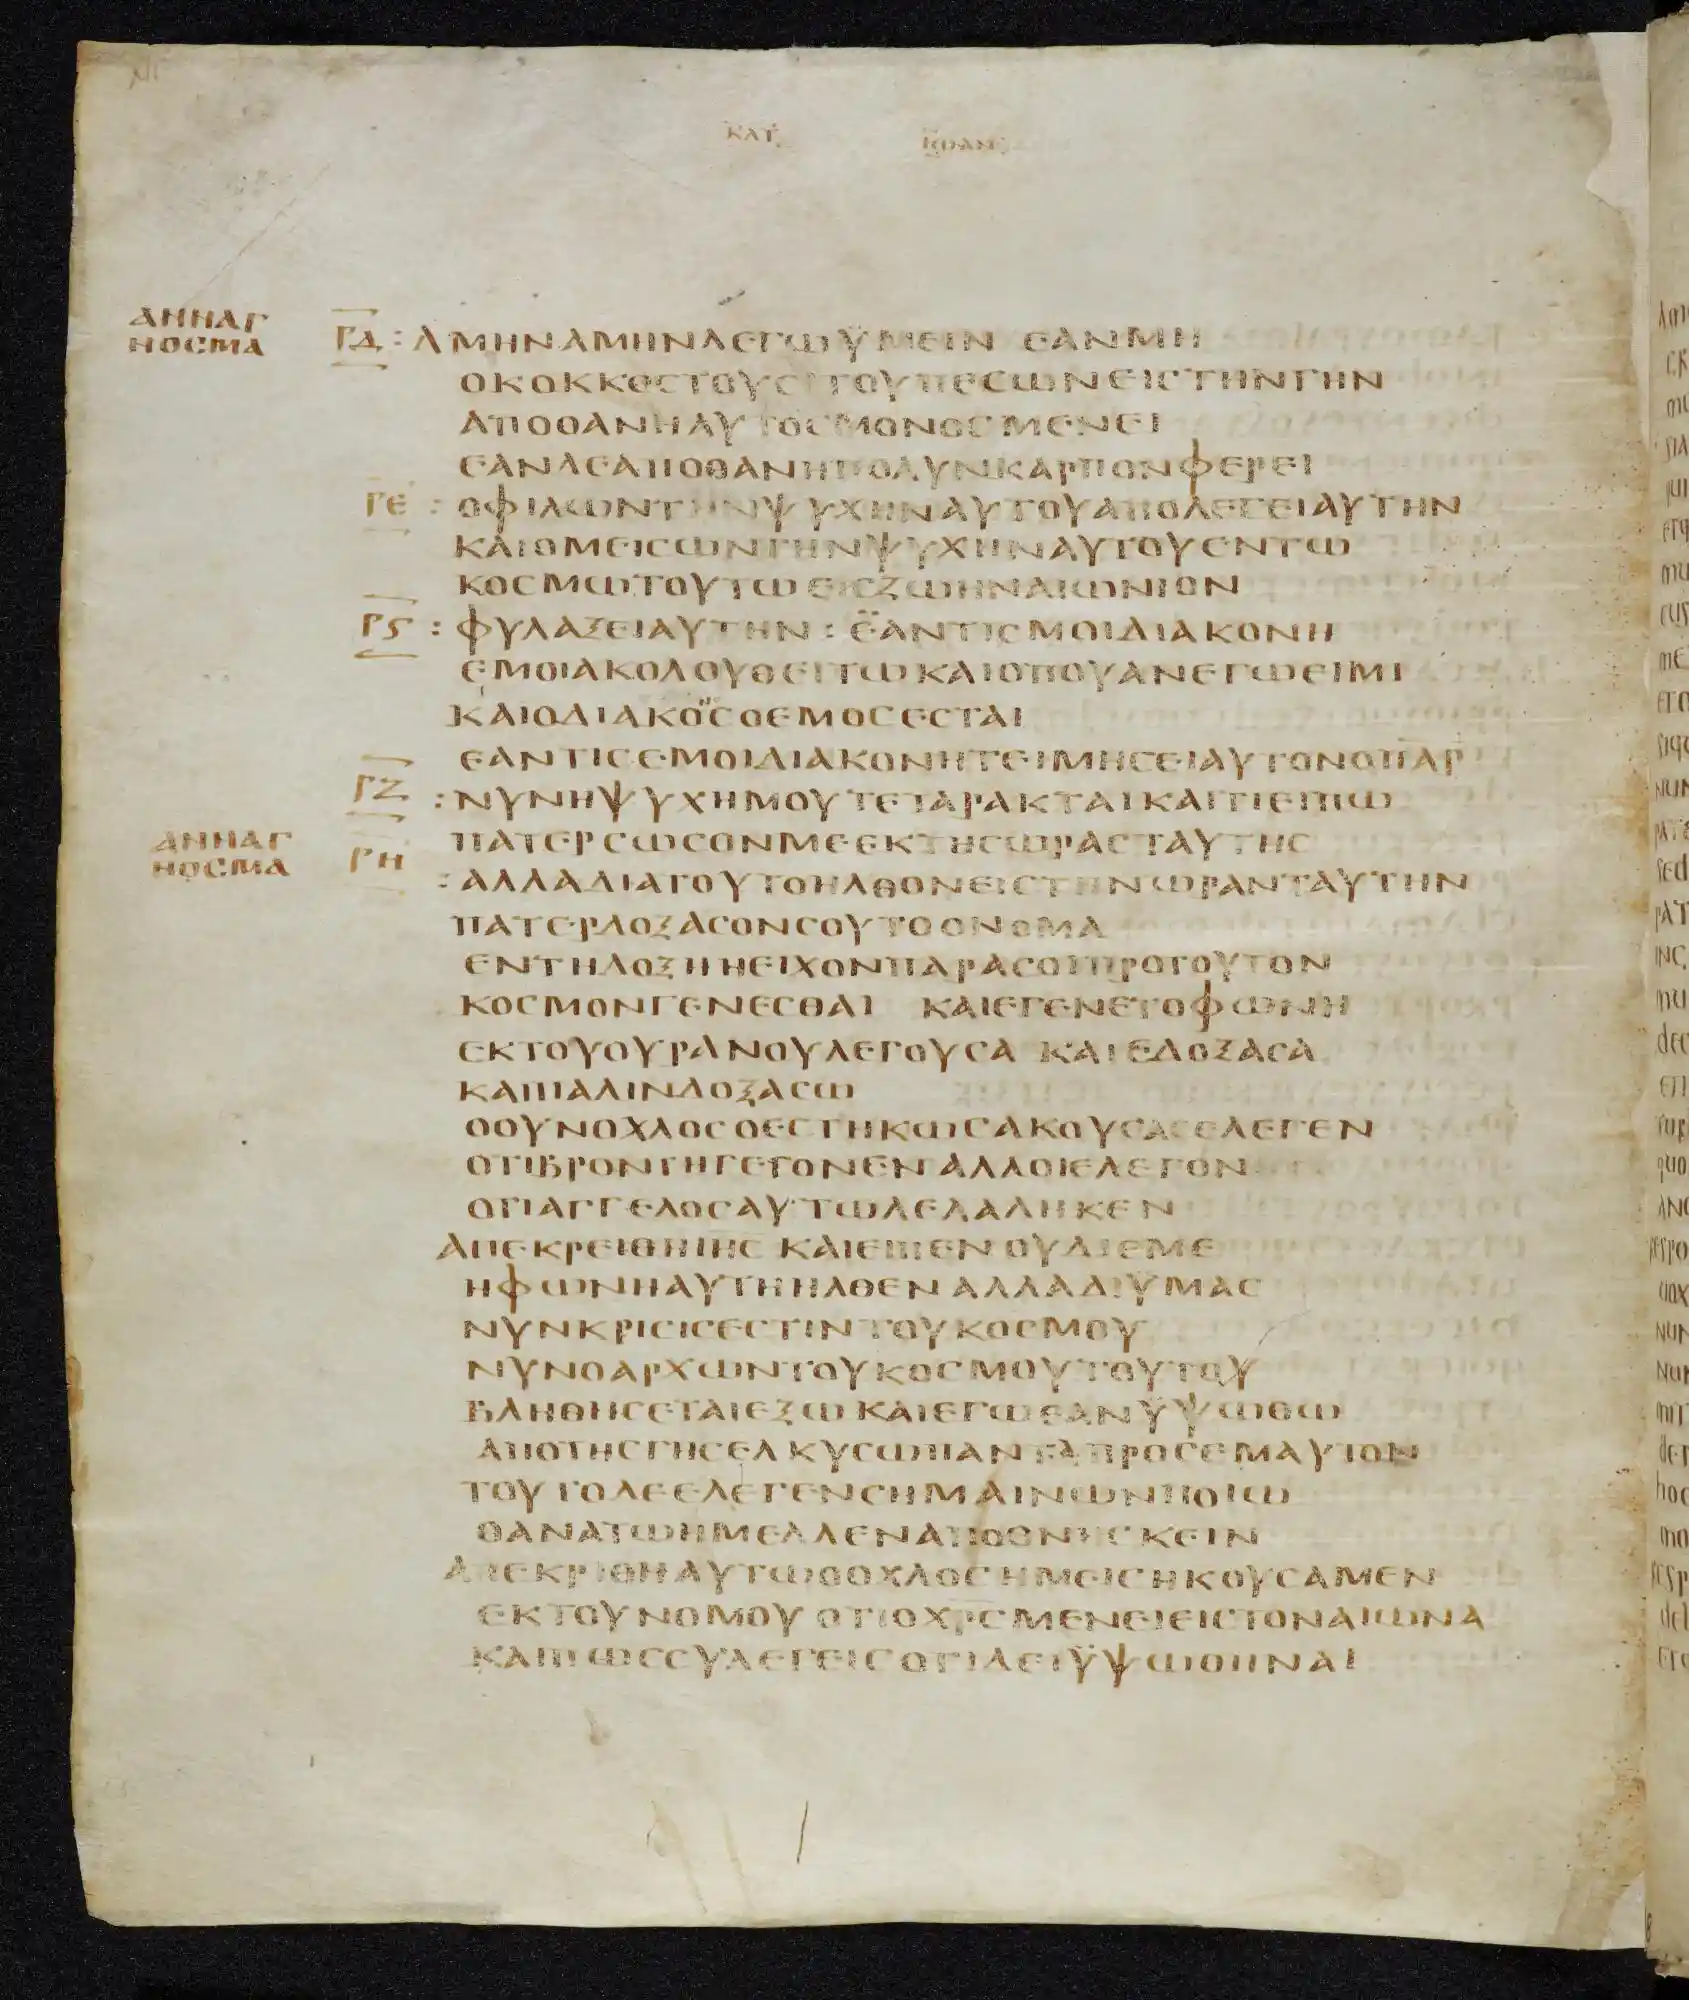 ΚΑΤ ΙΩΑΝ
ΑΝΝΑΓ
ΝΟΣΜΑ
ΡΔ : ΑΜΗΝΑΜΗΝΛΕΓΩΫΜΕΙΝ ΕΑΝΜΗ
ΟΚΟΚΚΟΣΤΟΥΣΙΤΟΥΠΕΣΩΝΕΙΣΤΗΝΓΗΝ
ΑΠΟΘΑΝΗΑΥΤΟΣΜΟΝΟΣΜΕΝΕΙ
ΕΑΝΔΕΑΠΟΘΑΝΗΠΟΛΥΝΚΑΡΠΟΝΦΕΡΕΙ
ΡΕ : ΟΦΙΛΩΝΤΗΝΨΥΧΗΝΑΥΤΟΥΑΠΟΛΕΣΕΙΑΥΤΗΝ
ΚΑΙΟΜΕΙΣΩΝΤΗΝΨΥΧΗΝΑΥΤΟΥΕΝΤΩ
ΚΟΣΜΩΤΟΥΤΩΕΙΣΖΩΗΝΑΙΩΝΙΟΝ
ΡϚ : ΦΥΛΑΞΕΙΑΥΤΗΝ : ΕΑΝΤΙΣΜΟΙΔΙΑΚΟΝΗ
ΕΜΟΙΑΚΟΛΟΥΘΕΙΤΩΚΑΙΟΠΟΥΑΝΕΓΩΕΙΜΙ
ΚΑΙΟΔΙΑΚΟΣΟΕΜΟΣΕΣΤΑΙ
ΕΑΝΤΙΣΕΜΟΙΔΙΑΚΟΝΗΤΕΙΜΗΣΕΙΑΥΤΟΝΟΠΑΡ
ΡΖ : ΝΥΝΗΨΥΧΗΜΟΥΤΕΤΑΡΑΚΤΑΙΚΑΙΤΙΕΙΠΩ
ΑΝΝΑΓ
ΝΟΣΜΑ
ΠΑΤΕΡΣΩΣΟΝΜΕΕΚΤΗΣΩΡΑΣΤΑΥΤΗΣ
ΡΗ : ΑΛΛΑΔΙΑΤΟΥΤΟΗΛΘΟΝΕΙΣΤΗΝΩΡΑΝΤΑΥΤΗΝ
ΠΑΤΕΡΔΟΞΑΣΟΝΣΟΥΤΟΟΝΟΜΑ
ΕΝΤΗΔΟΞΗΗΕΙΧΟΝΠΑΡΑΣΟΙΠΡΟΤΟΥΤΟΝ
ΚΟΣΜΟΝΓΕΝΕΣΘΑΙ ΚΑΙΕΓΕΝΕΤΟΦΩΝΗ
ΕΚΤΟΥΟΥΡΑΝΟΥΛΕΓΟΥΣΑ ΚΑΙΕΔΟΞΑΣΑ
ΚΑΙΠΑΛΙΝΔΟΞΑΣΩ
ΟΟΥΝΟΧΛΟΣΟΕΣΤΗΚΩΣΑΚΟΥΣΑΣΕΛΕΓΕΝ
ΟΤΙΒΡΟΝΤΗΓΕΓΟΝΕΝΑΛΛΟΙΕΛΕΓΟΝ
ΟΤΙΑΓΓΕΛΟΣΑΥΤΩΛΕΛΑΛΗΚΕΝ
ΑΠΕΚΡΕΙΘΗΙΗΣ ΚΑΙΕΙΠΕΝΟΥΔΙΕΜΕ
ΗΦΩΝΗΑΥΤΗΗΛΘΕΝΑΛΛΑΔΙΫΜΑΣ
ΝΥΝΚΡΙΣΙΣΕΣΤΙΝΤΟΥΚΟΣΜΟΥ
ΝΥΝΟΑΡΧΩΝΤΟΥΚΟΣΜΟΥΤΟΥΤΟΥ
ΒΛΗΘΗΣΕΤΑΙΕΞΩΚΑΙΕΓΩΕΑΝΫΨΩΘΩ
ΑΠΟΤΗΣΓΗΣΕΛΚΥΣΩΠΑΝΤΑΠΡΟΣΕΜΑΥΤΟΝ
ΤΟΥΤΟΔΕΕΛΕΓΕΝΣΗΜΑΙΝΩΝΠΟΙΩ
ΘΑΝΑΤΩΗΜΕΛΛΕΝΑΠΟΘΝΗΣΚΕΙΝ
ΑΠΕΚΡΙΘΗΑΥΤΩΟΟΧΛΟΣΗΜΕΙΣΗΚΟΥΣΑΜΕΝ
ΕΚΤΟΥΝΟΜΟΥΟΤΙΟΧΡΣΜΕΝΕΙΕΙΣΤΟΝΑΙΩΝΑ
ΚΑΙΠΩΣΣΥΛΕΓΕΙΣΟΤΙΔΕΙΫΨΩΘΗΝΑΙ